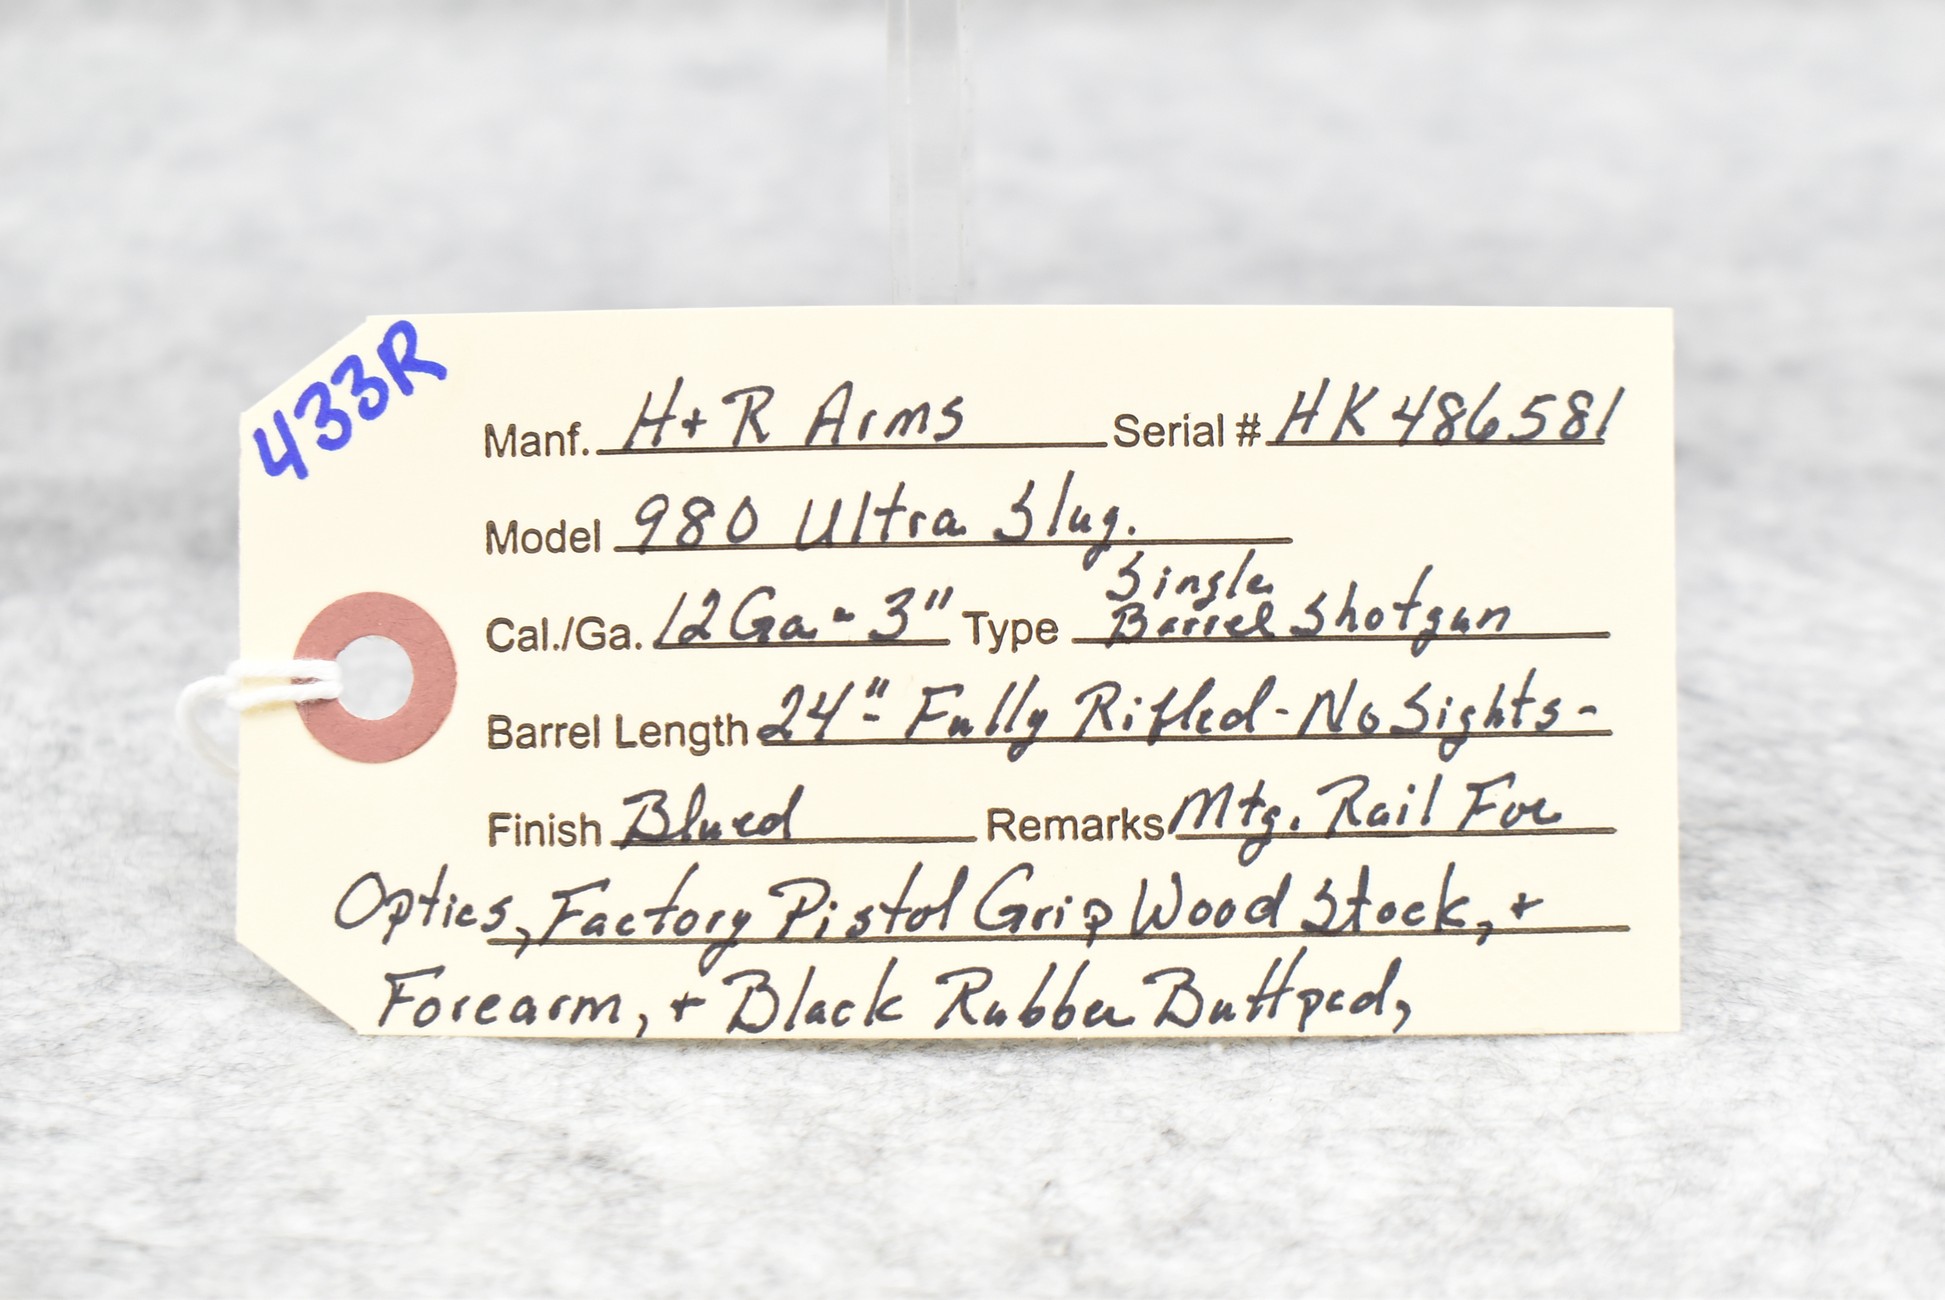 433R
Manf. H+R Arms Serial # HK486581
Model 980 Ultra Slug.
Cal./Ga. 12Ga - 3" Type Single Barrel Shotgun
Barrel Length 24" - Fully Rifled - No Sights -
Finish Blued Remarks Mtg. Rail For
Optics, Factory Pistol Grip Wood Stock, +
Forearm, + Black Rubber Buttpad,